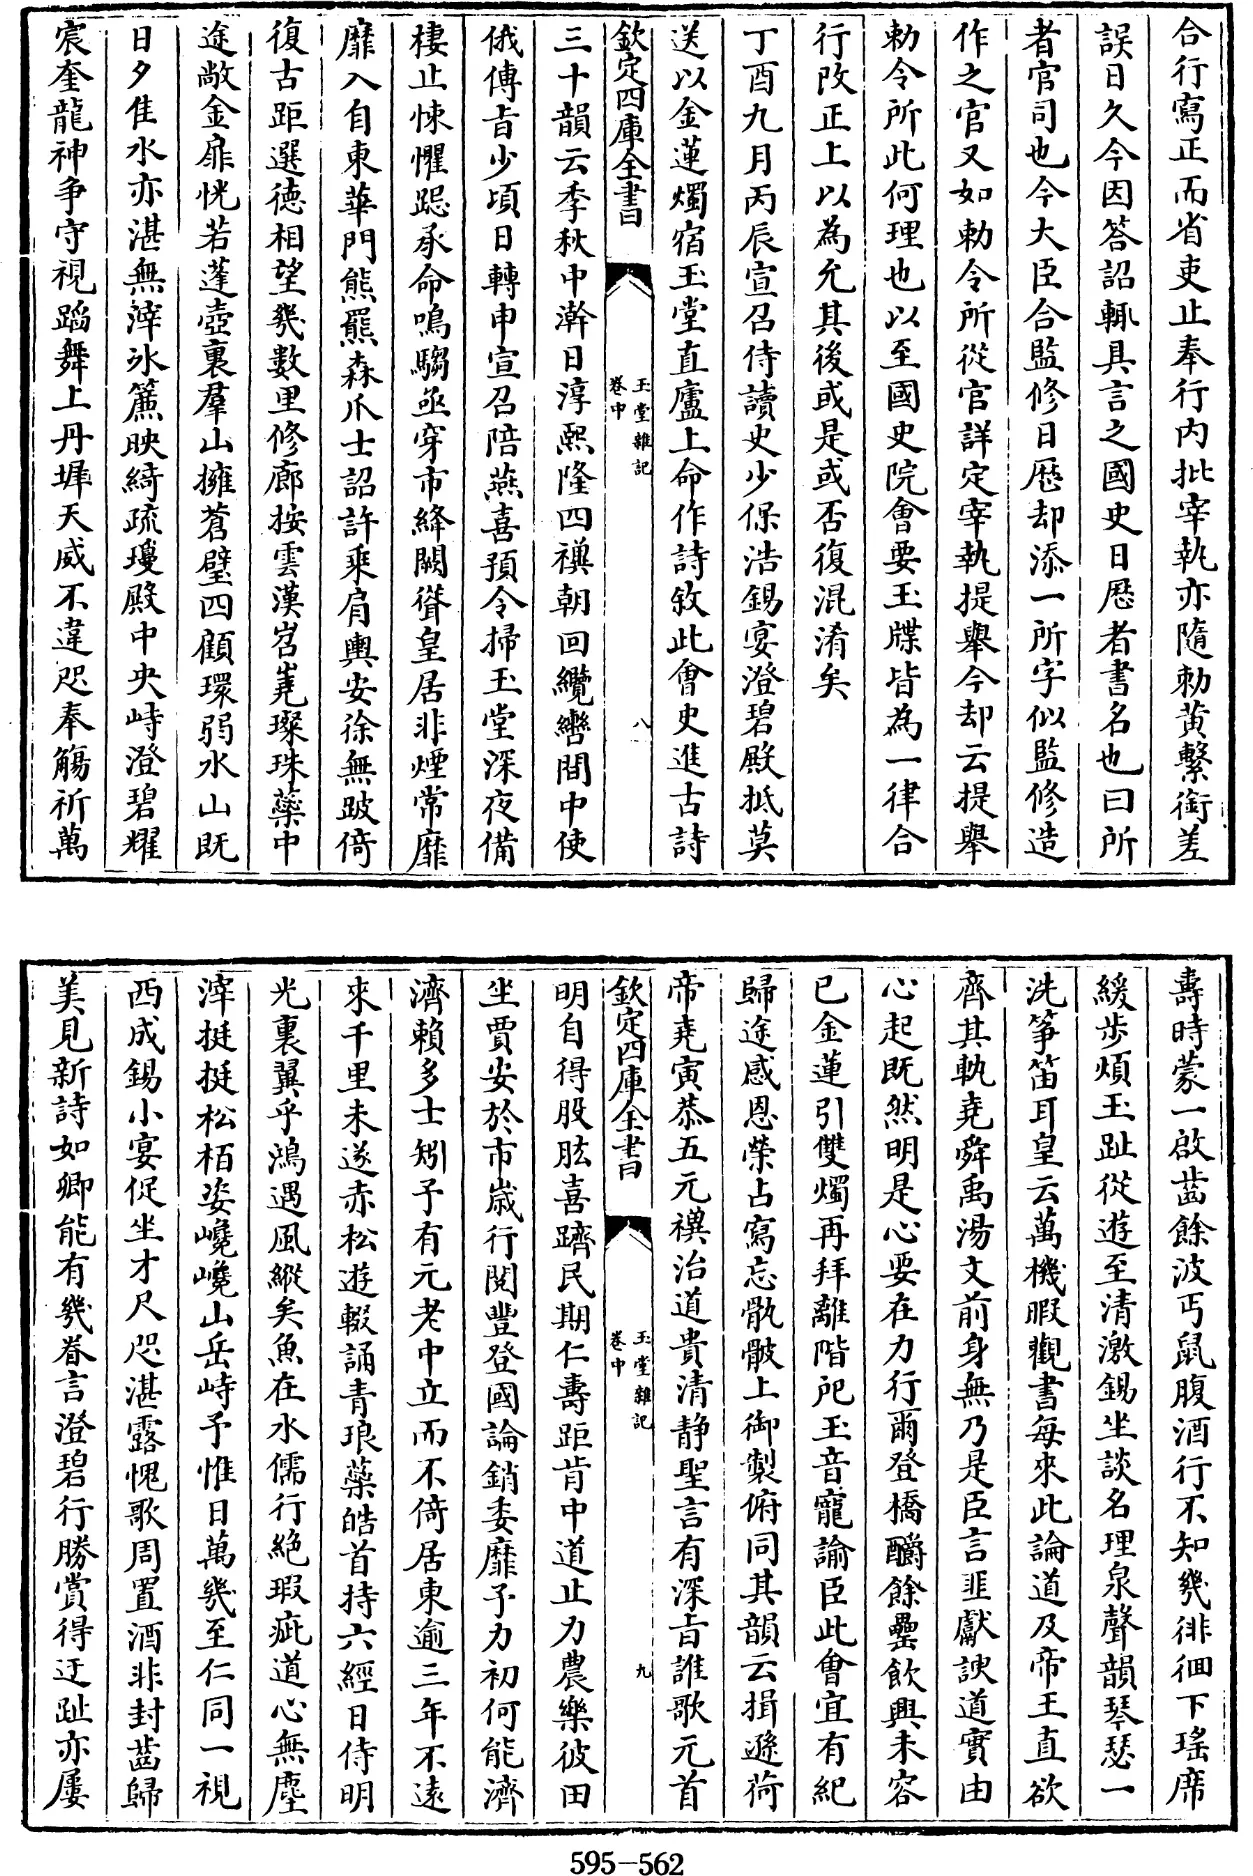 合行寫正而省吏止奉行内批宰執亦隨勅黄繫銜差
誤日久今因答詔輒具言之國史日厯者書名也曰所
者官司也今大臣合監修日厯却添一所字似監修造
作之官又如勅令所從官詳定宰執提舉今却云提舉
勅令所此何理也以至國史院會要玉牒皆為一律合
行改正上以為允其後或是或否復混淆矣
丁酉九月丙辰宣召侍讀史少保浩錫宴澄碧殿抵莫
送以金蓮燭宿玉堂直廬上命作詩敘此會史進古詩
欽定四庫全書
玉堂雜記
卷中
八
三十韻云季秋中澣日淳熙隆四禩朝回纜轡間中使
俄傳旨少頃日轉申宣召陪燕喜預令掃玉堂深夜備
棲止悚懼跽承命鳴騶亟穿市絳闕聳皇居非煙常靡
靡入自東華門熊羆森爪士詔許乘肩輿安徐無跛倚
復古距選德相望㡬數里修廊按雲漢岧嶤璨珠蘂中
途敞金扉恍若蓬壺裏羣山擁蒼璧四顧環弱水山既
日夕佳水亦湛無滓氷簾映綺疏瓊殿中央峙澄碧耀
宸奎龍神争守視蹈舞上丹墀天威不違咫奉觴祈萬
壽時蒙一啟齒餘波丐鼠腹酒行不知㡬徘徊下瑤席
緩歩煩玉趾從遊至清激錫坐談名理泉聲韻琴瑟一
洗筝笛耳皇云萬機暇觀書每來此論道及帝王直欲
齊其軌堯舜禹湯文前身無乃是臣言匪獻諛道實由
心起既然明是心要在力行爾登橋釂餘罍飲興未容
已金蓮引雙燭再拜離階戺玉音寵諭臣此會宜有紀
歸途感恩榮占寫忘骫骳上御製俯同其韻云揖遜荷
帝堯寅恭五元禩治道貴清静聖言有深旨誰歌元首
欽定四庫全書
玉堂雜記
卷中
九
明自得股肱喜躋民期仁壽距肯中道止力農樂彼田
坐賈安於市歳行閲豐登國論銷委靡予力初何能濟
濟賴多士矧予有元老中立而不倚居東逾三年不逺
來千里未遂赤松遊輟誦青琅蘂皓首持六經日侍明
光裏翼乎鴻遇風縱矣魚在水儒行絶瑕疵道心無塵
滓挺挺松栢姿嶢嶢山岳峙予惟日萬㡬至仁同一視
西成錫小宴促坐才尺咫湛露愧歌周置酒非封齒歸
美見新詩如卿能有㡬眷言澄碧行勝賞得迂趾亦屢
595—562